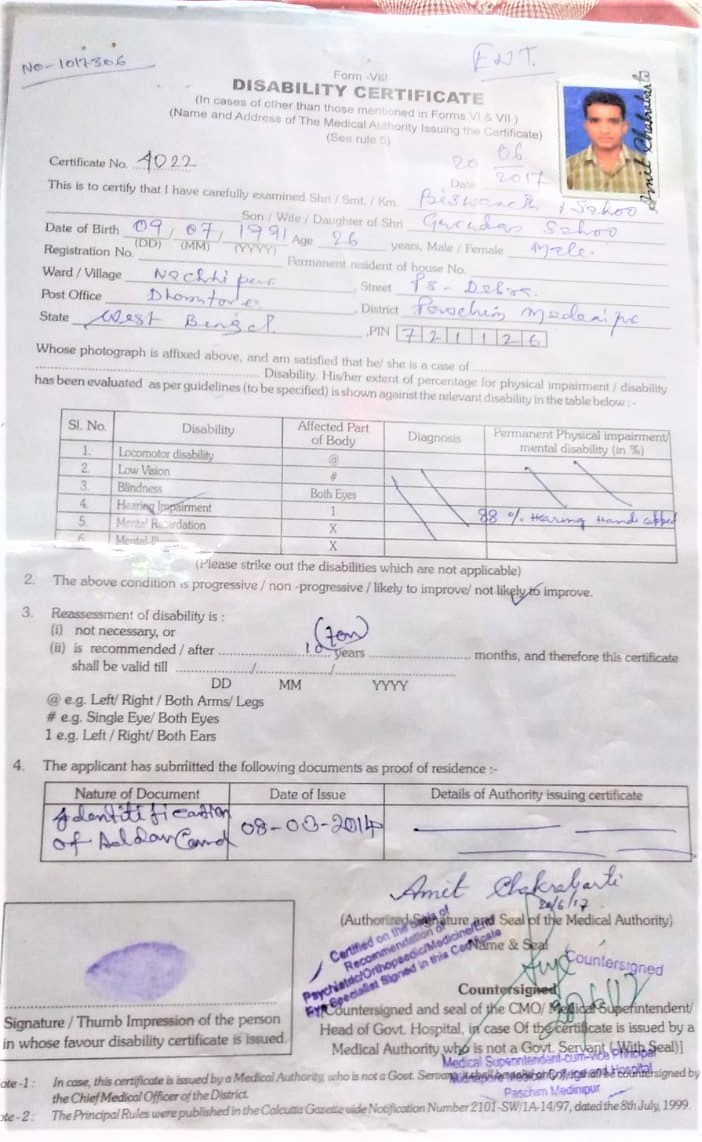 NO-1017306
ENT.
Form -VIII
DISABILITY CERTIFICATE
(In cases of other than those mentioned in Forms VI & VII )
(Name and Address of The Medical Authority Issuing the Certificate)
(See rule 5)
Amit Chakrabarti
Certificate No. 4022
Date 20 06 2017
This is to certify that I have carefully examined Shri / Smt. / Km. Biswanath Sahoo
Son / Wife / Daughter of Shri Gurudas Sahoo
Date of Birth 09 / 07 / 1991 Age 26 years, Male / Female Male.
(DD) (MM) (YYYY)
Registration No. Permanent resident of house No.
Ward / Village Street PS - Debra.
Post Office District Paschim Medinipur
State West Bengal. ,PIN 721126
Whose photograph is affixed above, and am satisfied that he/ she is a case of
Disability. His/her extent of percentage for physical impairment / disability
has been evaluated as per guidelines (to be specified) is shown against the relevant disability in the table below :-
Sl. No. Disability Affected Part of Body Diagnosis Permanent Physical impairment/ mental disability (in %)
1. Locomotor disability @
2. Low Vision #
3. Blindness Both Eyes
4. Hearing Impairment 1 88 % Hearing Handicapped
5. Mental Retardation X
6. Mental- X
(Please strike out the disabilities which are not applicable)
2. The above condition is progressive / non -progressive / likely to improve/ not likely to improve.
3. Reassessment of disability is :
(i) not necessary, or
(ii) is recommended / after 10 (ten) years months, and therefore this certificate
shall be valid till / /
DD MM YYYY
@ e.g. Left/ Right / Both Arms/ Legs
# e.g. Single Eye/ Both Eyes
1 e.g. Left / Right/ Both Ears
4. The applicant has submitted the following documents as proof of residence :-
Nature of Document Date of Issue Details of Authority issuing certificate
Identitification 08-03-2014
of Addar Card
Amit Chakrabarti
20/6/17
(Authorized Signature and Seal of the Medical Authority)
Name & Seal
Certified on the basis of
Recommendation of
Psychiatric/Orthopaedic/Medicine/Ent
Eye Specialist Signed in this Certificate
Countersigned
Countersigned
Countersigned and seal of the CMO/ Medical Superintendent/
Head of Govt. Hospital, in case Of the certificate is issued by a
Medical Authority who is not a Govt. Servant ( With Seal)]
Medical Superintendent-cum-Vice Principal
Paschim Medinipur
Signature / Thumb Impression of the person
in whose favour disability certificate is issued.
ote -1 : In case, this certificate is issued by a Medical Authority, who is not a Govt. Servant countersigned by
the Chief Medical Officer of the District.
ote - 2 : The Principal Rules were published in the Calcutta Gazette vide Notification Number 2101-SW/1A-14/97, dated the 8th July, 1999.